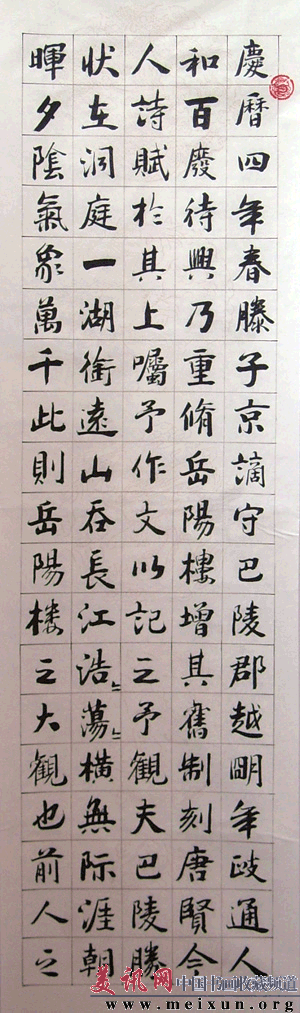 慶曆四年春滕子京謫守巴陵郡越明年政通人
和百廢待興乃重脩岳陽樓增其舊制刻唐賢今
人詩賦於其上囑予作文以記之予觀夫巴陵勝
状在洞庭一湖銜遠山吞長江浩〻蕩〻橫無際涯朝
暉夕陰氣象萬千此則岳陽楼之大觀也前人之
美讯网 中国书画收藏频道
www.meixun.org